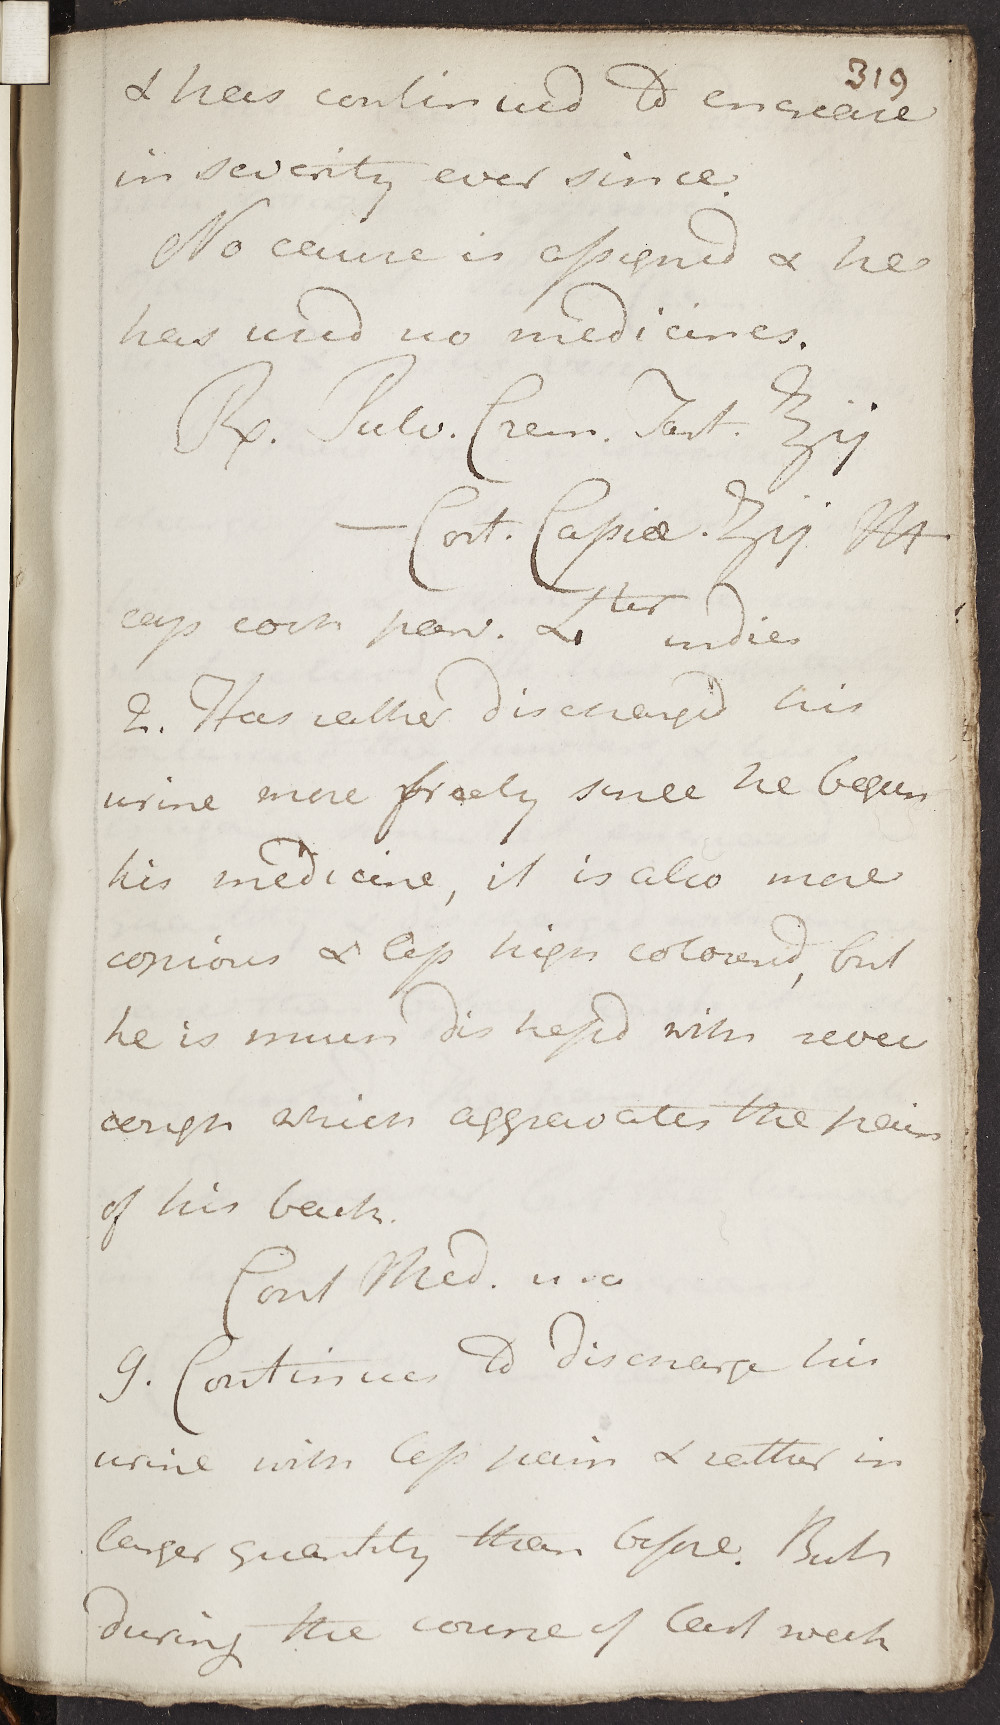 319
& has continued to encrease
in severity ever since.
No cause is assigned & he
has used no medicines.
Rx. Pulv. Crem. Tart. ℥ij
— Cort. Capiæ. ℥ij M
cap coch parv. ter indies
2. Has rather discharged his
urine more freely since he begun
his medicine, it is also more
copious & less high colored, but
he is much distressd with severe
cough which aggravates the pain
of his back.
Cont Med. u.a
9. Continues to discharge his
urine with less pain & rather in
larger quantity than before. But
during the course of last week